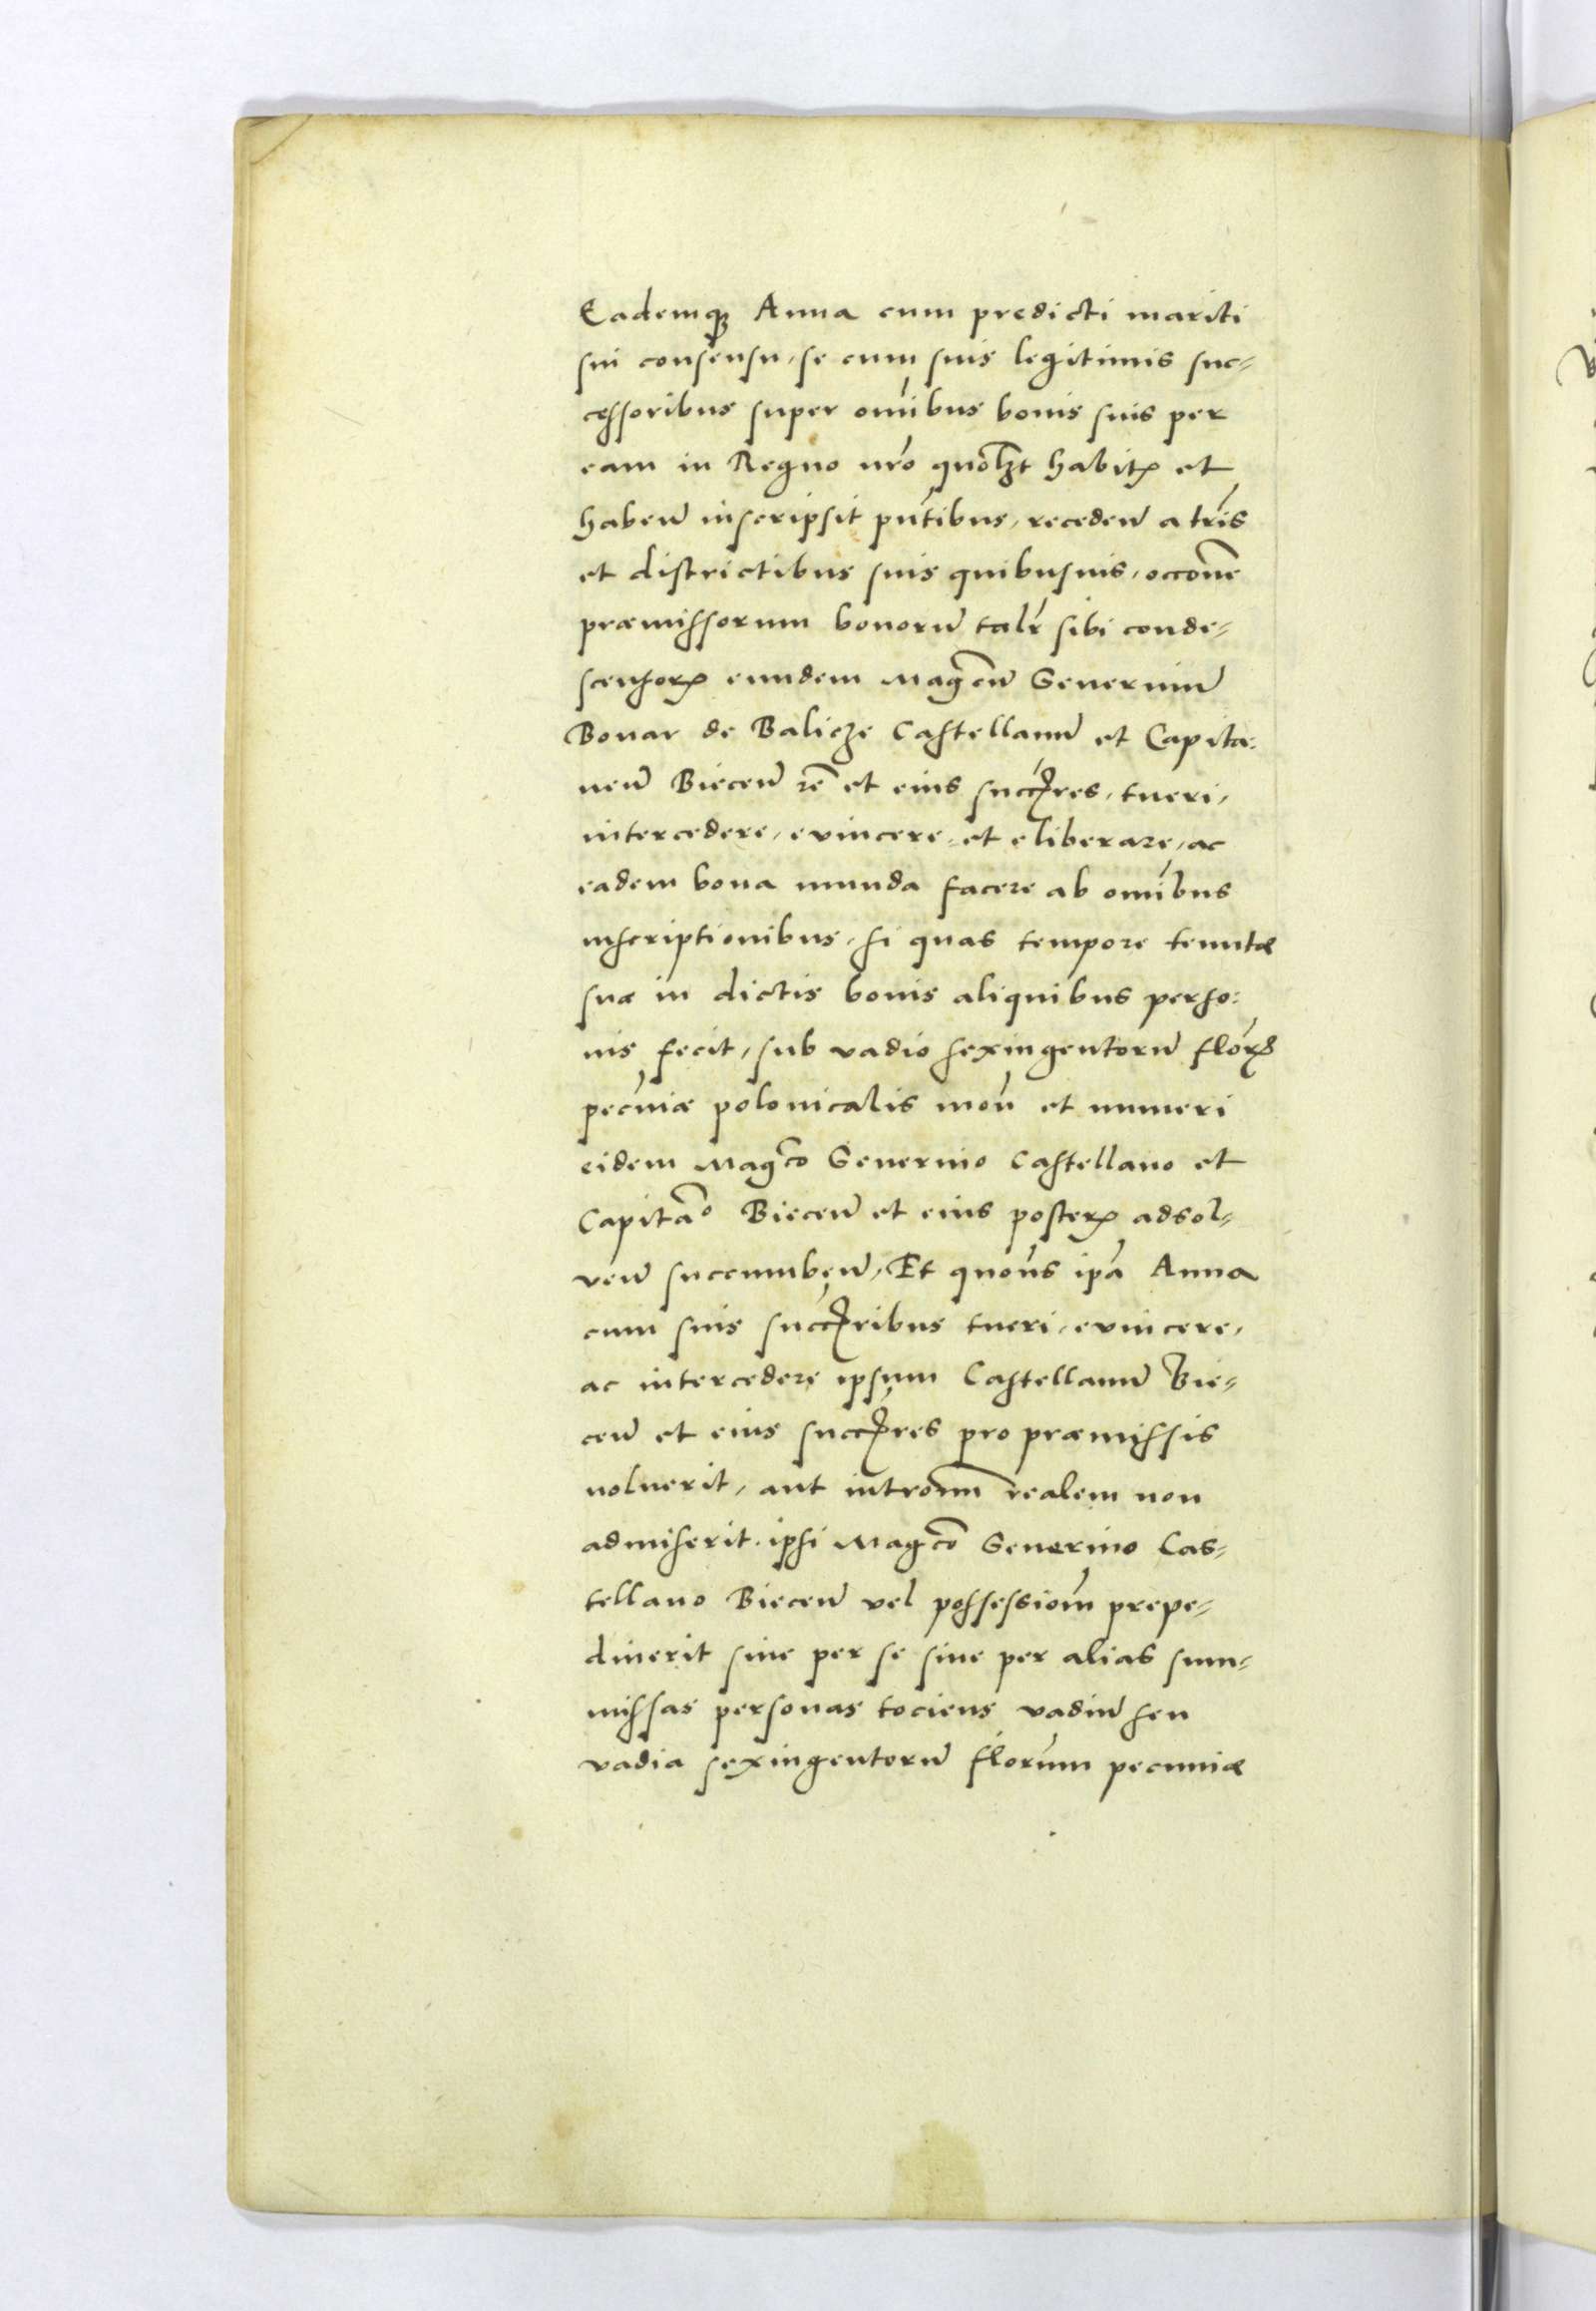 Eademq₃ Anna cum predicti mariti
sui consensu, se cum suis legitimis suc=
cessoribus super om̃ibus bonis suis per
eam in Regno nr̃o quol₃t habitꝝ et
haben̄ inscripsit pñtibus, receden̄ a tr̃is
et districtibus suis quibusuis, occõne
præmissorum bonorū talr̃ sibi conde=
scensorꝝ eundem Magcū Seuerinū
Bonar de Balicze Castellanū et Capita=
neū Biecen̄ rē et eius succ̃res, tueri,
intercedere, euincere, et eliberare, ac
eadem bona munda facere ab om̃ibus
inscriptionibus, si quas tempore tenutæ
suæ in dictis bonis aliquibus perso=
nis fecit, sub vadio sexingentorū florꝝ
pecũiæ polonicalis moñ et numeri
eidem Magco Seuerino Castellano et
Capitão Biecen̄ et eius posterꝝ adsol=
uen̄ succumben̄, Et quoc̃ns ipã Anna
cum suis succ̃ribus tueri, euincere,
ac intercedere ipsum Castellanū Bie=
cen̄ et eius succ̃res pro præmissis
noluerit, aut intromm̃ realem non
admiserit. ipsi Magco Seuerino Cas=
tellano Biecen̄ vel possessiom̃ prepe=
diuerit siue per se siue per alias sum=
missas personas tociens vadiū seu
vadia sexingentorū florũm pecuniæ